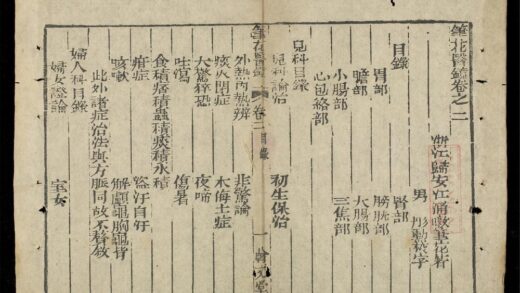 筆花醫鏡卷之二
浙江歸安江涵暾筆花著
男
目錄
胃部 腎部
膽部 膀胱部
小腸部 大腸部
心包絡部 三焦部
兒科目錄
兒科論治 初生保治
筆花醫鏡 卷二 目錄 一
外熱內熱辨 非驚論
痰火閉症 木侮土症
大驚猝恐 夜啼
吐瀉 傷暑
食積痞積蟲積痰積水積
疳症 盜汗自汗
咳嗽 解顱龜胸龜背
此外諸症治法與方脈同故不贅敘
婦人科目錄
婦女證論 室女